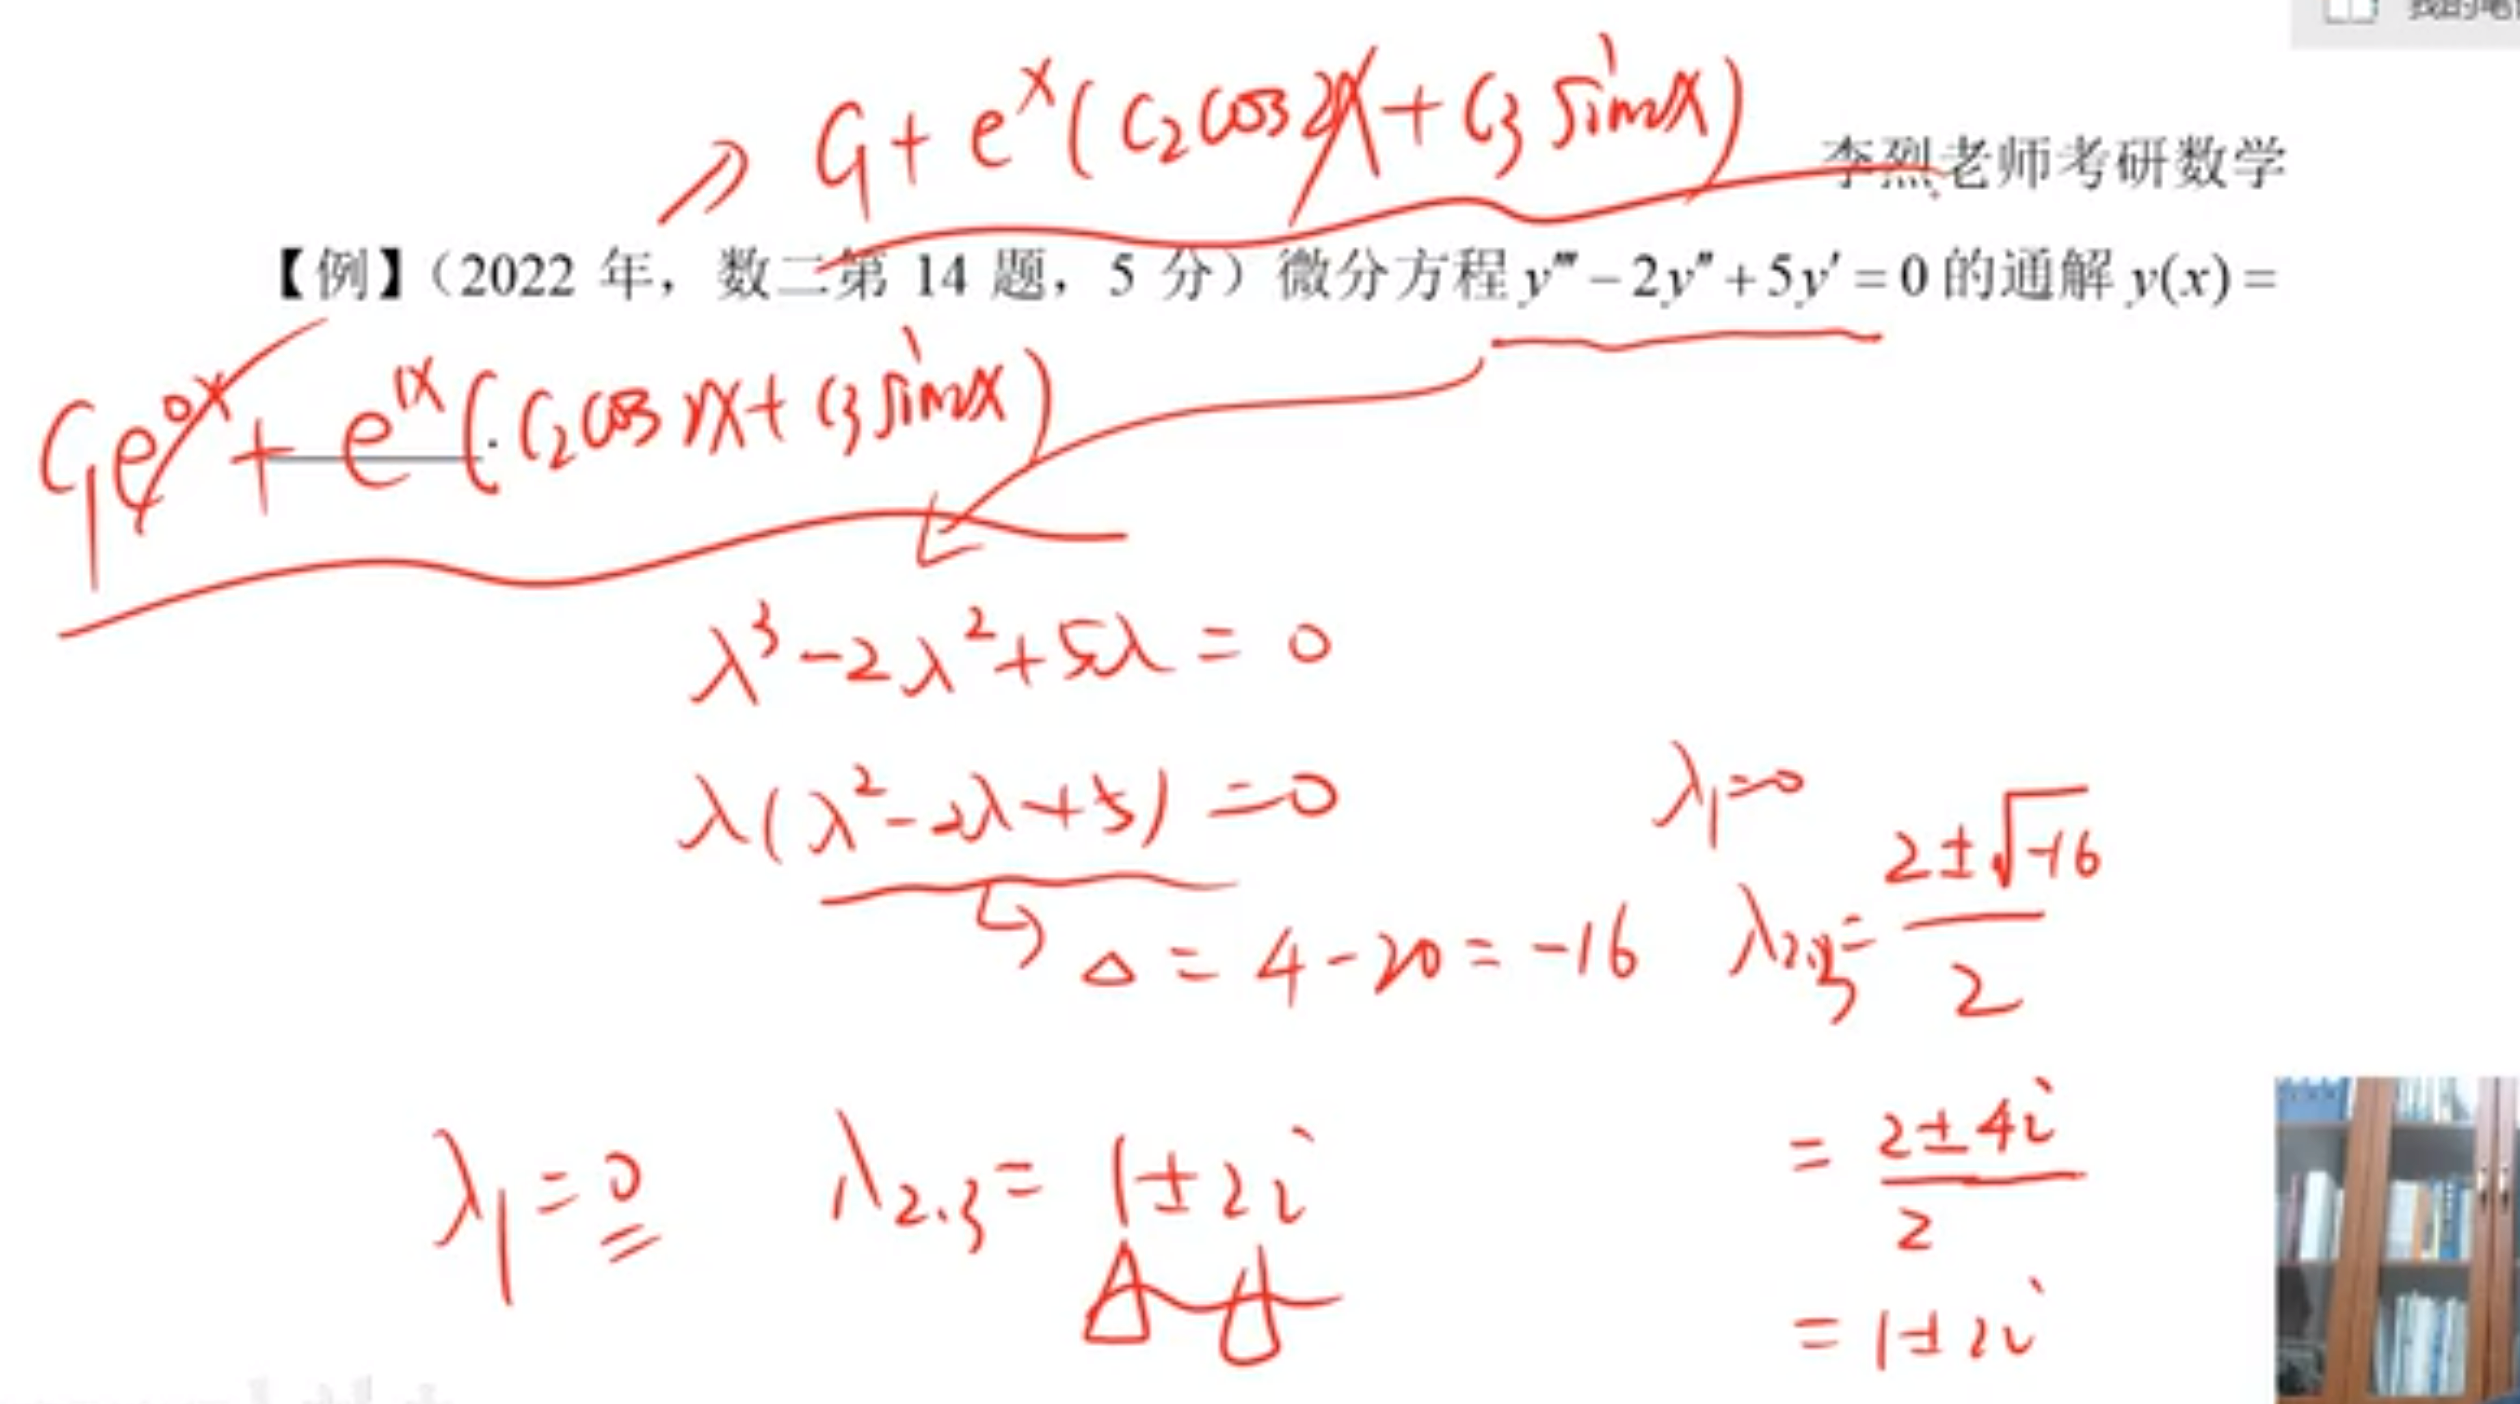 我的笔
⇒ C₁ + eˣ(C₂cos2x + C₃sin2x)
李烈老师考研数学
【例】（2022 年，数二第 14 题，5 分）微分方程 y‴ − 2y″ + 5y′ = 0 的通解 y(x) =
C₁e⁰ˣ + e¹ˣ(C₂cos2x + C₃sin2x)
.
λ³ − 2λ² + 5λ = 0
λ(λ² − 2λ + 5) = 0
λ₁ = 0
Δ = 4 − 20 = −16
λ₂.₃ = (2 ± √−16)/2
= (2 ± 4i)/2
λ₁ = 0 λ₂.₃ = 1 ± 2i
= 1 ± 2i